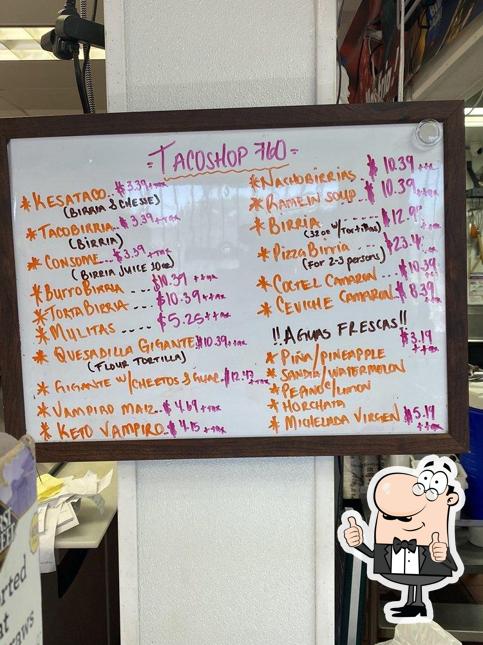 -TACOSHOP 760-
*KESATACO.. $3.39++tax
(BIRRIA & CHEESE)
*TACOBIRRIA.. $3.39++tax
(BIRRIA)
*CONSOME.. $3.39++tax
(BIRRIA JUICE 10oz)
*BURROBIRRIA -- $10.39++tax
*TORTABIRRIA -- $10.39++tax
*MULITAS ---- $5.25++tax
*QUESADILLA GIGANTE $10.39++tax
(FLOUR TORTILLA)
*GIGANTE W/CHEETOS & GUAC..$12.43++tax
*VAMPIRO MAIZ.. $4.69++tax
*KETO VAMPIRO.. $4.15++tax
*NACHOBIRRIAS.. $10.39++tax
*RAMEIN SOUP.. $10.39++tax
*BIRRIA ------ $12.95++
(32oz w/Tortillas)
*PIZZABIRRIA ---- $23.4
(For 2-3 persons)
*COCTEL CAMARON.. $10.39
*CEVICHE CAMARON.. $8.39
!!AGUAS FRESCAS!! $3.19++tax
*PIÑA/PINEAPPLE
*SANDIA/WATERMELON
*PEPINO c/LIMON
*HORCHATA
*MICHELADA VIRGEN $5.19++tax